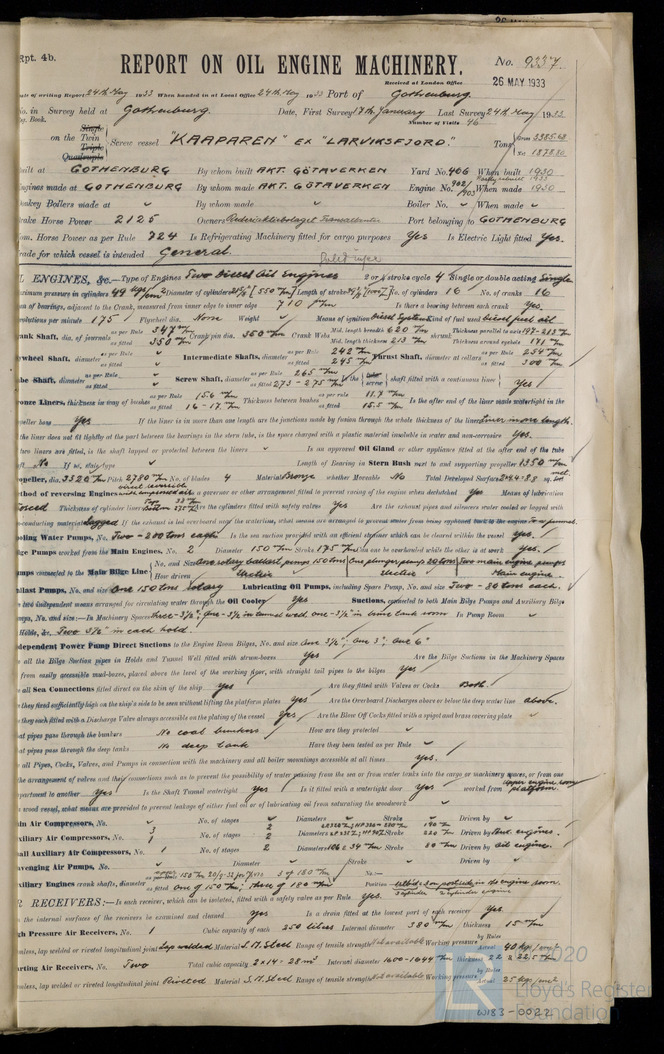 Rpt. 4b.
REPORT ON OIL ENGINE MACHINERY.
No. 9337.
Received at London Office
26 MAY 1933
of writing Report 24th May 1933 When handed in at Local Office 24th May 1933 Port of Gothenburg
in Survey held at Gothenburg. Date, First Survey 17th January Last Survey 24th May 1933
Book. Number of Visits 46
Single
on the Twin Triple Quadruple Screw vessel "KAAPAREN" EX "LARVIKSFJORD." Tons
Built at GOTHENBURG By whom built AKT. GÖTAVERKEN Yard No. 406 When built 1930
Engines made at GOTHENBURG By whom made AKT. GÖTAVERKEN Engine No. 902/903 When made 1930
Donkey Boilers made at By whom made Boiler No. When made
Brake Horse Power 2125 Owners Port belonging to GOTHENBURG
Nom. Horse Power as per Rule 724 Is Refrigerating Machinery fitted for cargo purposes Yes Is Electric Light fitted Yes.
Trade for which vessel is intended General.
OIL ENGINES, &c.—Type of Engines Two Diesel Oil Engines 2 or 4 stroke cycle 4 Single or double acting Single
Maximum pressure in cylinders Diameter of cylinders Length of stroke No. of cylinders 16 No. of cranks 16
of bearings, adjacent to the Crank, measured from inner edge to inner edge 710 Is there a bearing between each crank Yes.
Revolutions per minute 175 Flywheel dia. None Weight Means of ignition Diesel System Kind of fuel used Diesel fuel oil
Crank Shaft, dia. of journals as per Rule 347 as fitted 350 Crank pin dia. 350 Crank Webs Mid. length breadth 620 Mid. length thickness 213 Thickness parallel to axis 197-213 Thickness around eyehole 171
Flywheel Shaft, diameter Intermediate Shafts, diameter as per Rule 242 as fitted 245 Thrust Shaft, diameter at collars as per Rule 254 as fitted 300
Tube Shaft, diameter Screw Shaft, diameter as per Rule 265 as fitted 273-275 Is the shaft fitted with a continuous liner Yes
Bronze Liners, thickness in way of bushes as per Rule 15.6 as fitted 16-17 Thickness between bushes as per rule 11.7 as fitted 15.5 Is the after end of the liner made watertight in the
propeller boss Yes If the liner is in more than one length are the junctions made by fusion through the whole thickness of the liner
the liner does not fit tightly at the part between the bearings in the stern tube, is the space charged with a plastic material insoluble in water and non-corrosive Yes.
two liners are fitted, is the shaft lapped or protected between the liners Is an approved Oil Gland or other appliance fitted at the after end of the tube
shaft No If so, state type Length of Bearing in Stern Bush next to and supporting propeller 1350
Propeller, dia. 3320 Pitch 2780 No. of blades 4 Material Bronze whether Moveable No Total Developed Surface
Method of reversing Engines a governor or other arrangement fitted to prevent racing of the engine when declutched Yes Means of lubrication
Forced Thickness of cylinder liners Are the cylinders fitted with safety valves Yes Are the exhaust pipes and silencers water cooled or lagged with
non-conducting material lagged If the exhaust is led overboard near the waterline, what means are arranged to prevent water from being syphoned back to the engine
Cooling Water Pumps, No. Two - 200 tons each Is the sea suction provided with an efficient strainer which can be cleared within the vessel yes.
Bilge Pumps worked from the Main Engines, No. 2 Diameter 150 Stroke 175 Can one be overhauled while the other is at work Yes.
Pumps connected to the Main Bilge Line No. and Size One rotary ballast pumps 150 tons One plunger pump 20 tons Two main engine pumps
How driven Electric Electric Main engine.
Ballast Pumps, No. and size One 150 tons rotary Lubricating Oil Pumps, including Spare Pump, No. and size Two - 80 tons each.
two independent means arranged for circulating water through the Oil Cooler Yes Suctions, connected to both Main Bilge Pumps and Auxiliary Bilge
Pumps, No. and size:—In Machinery Spaces Three - 3½", One - 3½ in tunnel well one - 3½" in brine tank room In Pump Room
Holds, &c. Two 3½" in each hold.
Independent Power Pump Direct Suctions to the Engine Room Bilges, No. and size One 3½"; One 3"; One 6"
all the Bilge Suction pipes in Holds and Tunnel Well fitted with strum-boxes Yes Are the Bilge Suctions in the Machinery Spaces
from easily accessible mud-boxes, placed above the level of the working floor, with straight tail pipes to the bilges Yes
all Sea Connections fitted direct on the skin of the ship Yes Are they fitted with Valves or Cocks Both.
they fixed sufficiently high on the ship's side to be seen without lifting the platform plates Yes Are the Overboard Discharges above or below the deep water line above.
they each fitted with a Discharge Valve always accessible on the plating of the vessel Yes Are the Blow Off Cocks fitted with a spigot and brass covering plate
What pipes pass through the bunkers No coal bunkers How are they protected
What pipes pass through the deep tanks No deep tank Have they been tested as per Rule
all Pipes, Cocks, Valves, and Pumps in connection with the machinery and all boiler mountings accessible at all times Yes.
the arrangement of valves and their connections such as to prevent the possibility of water passing from the sea or from water tanks into the cargo or machinery spaces, or from one
compartment to another Yes Is the Shaft Tunnel watertight Yes Is it fitted with a watertight door Yes worked from Upper engine room platform.
wood vessel, what means are provided to prevent leakage of either fuel oil or of lubricating oil from saturating the woodwork
Main Air Compressors, No. No. of stages Diameters Stroke Driven by
Auxiliary Air Compressors, No. 3 No. of stages 2 Diameters Stroke 220 Driven by
Small Auxiliary Air Compressors, No. 1 No. of stages 2 Diameters 106 & 34 Stroke 80 Driven by Oil engine.
Scavenging Air Pumps, No. Diameter Stroke Driven by
Auxiliary Engines crank shafts, diameter as fitted One of 150; three of 180 Position
AIR RECEIVERS:—Is each receiver, which can be isolated, fitted with a safety valve as per Rule Yes.
the internal surfaces of the receivers be examined and cleaned Yes Is a drain fitted at the lowest part of each receiver Yes.
High Pressure Air Receivers, No. 1 Cubic capacity of each 250 litres Internal diameter 380 thickness 15
Seamless, lap welded or riveted longitudinal joint Lap welded Material S.M. Steel Range of tensile strength Not available Working pressure by Rules Actual 40
Starting Air Receivers, No. Two Total cubic capacity 2×14 = 28 m³ Internal diameter 1600-1644 thickness 22 & 22.5
Seamless, lap welded or riveted longitudinal joint Riveted Material S.M. Steel Range of tensile strength Not available Working pressure by Rules Actual 25
© 2020
Lloyd's Register
Foundation
W183-0022